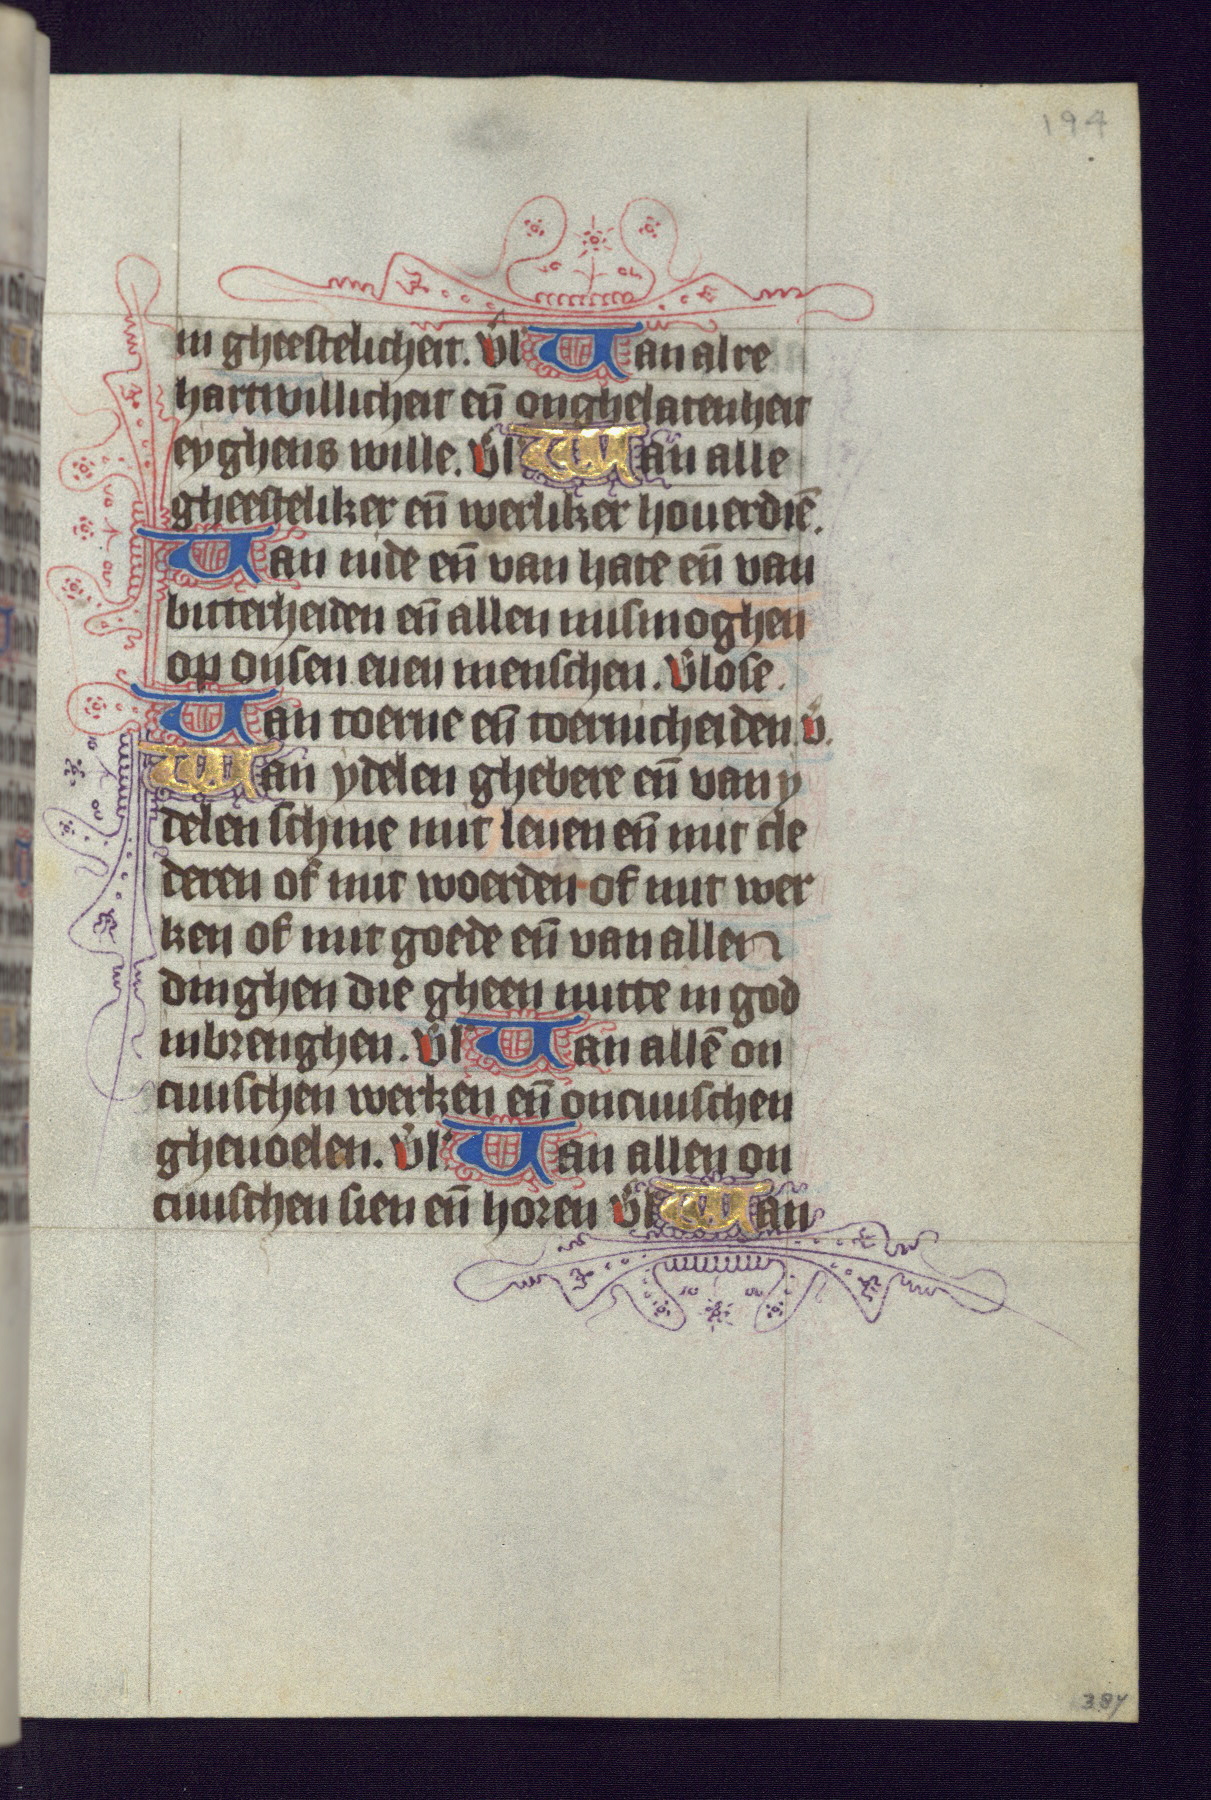 194
in gheestelicheit. Vl' Van alre
hartwillicheit eñ onghelatenheit
eyghens wille. Vl' Van alle
gheesteliker eñ werliker houerdiē.
Van nide eñ van hate eñ van
bitterheiden eñ allen mismoghen
op onsen euen menschen. Vlose.
Van toerne eñ toernicheiden. V.
Van ydelen ghebere eñ van y
delen schine mit leuen eñ mit cle
deren of mit woerden of mit wer
ken of mit goede eñ van allen
dinghen die gheen nutte in god
inbrenghen. Vl' Van allē on
cuuschen werken eñ oncuuschen
gheuoelen. Vl' Van allen on
cuuschen sien eñ horen Vl' Van
387